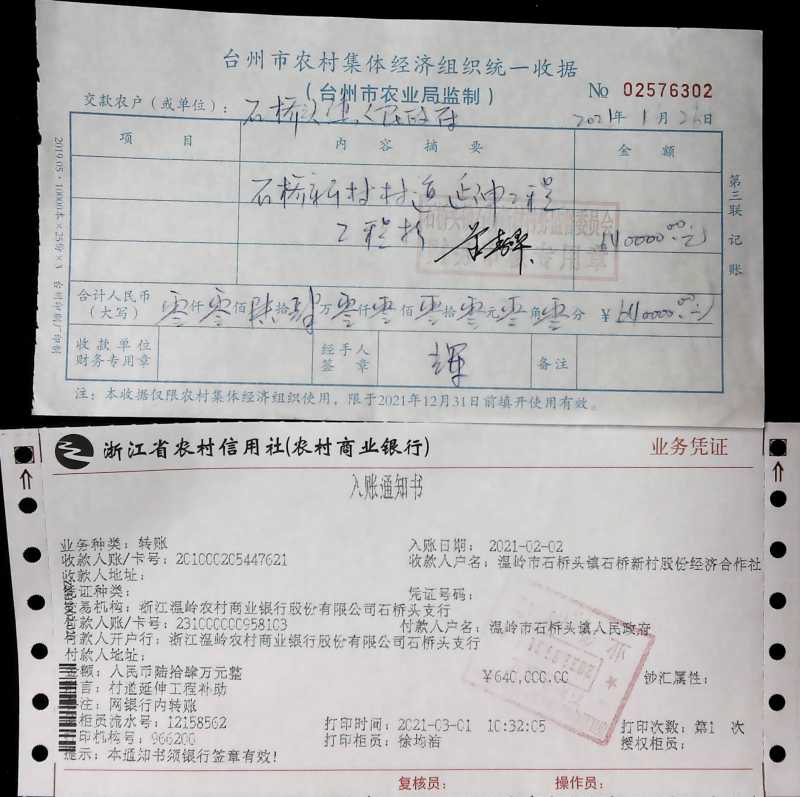 台州市农村集体经济组织统一收据
(台州市农业局监制)
No 02576302
交款农户(或单位):石桥头镇人民政府
2021年1月26日
项 目 内 容 摘 要 金 额
石桥新村村道延伸工程
工程款
640000.00元
合计人民币(大写) 零仟零佰陆拾肆万零仟零佰零拾零元零角零分 ¥640000.00元
收款单位财务专用章
经手人签章
备注
注:本收据仅限农村集体经济组织使用,限于2021年12月31日前填开使用有效。
第三联 记账
2019.05·10000本×25份×3 台州
浙江省农村信用社(农村商业银行)
业务凭证
入账通知书
业务种类:转账 入账日期:2021-02-02
收款人账/卡号:201000205447621 收款人户名:温岭市石桥头镇石桥新村股份经济合作社
收款人地址:
凭证种类: 凭证号码:
交易机构:浙江温岭农村商业银行股份有限公司石桥头支行
付款人账/卡号:231000000958103 付款人户名:温岭市石桥头镇人民政府
付款人开户行:浙江温岭农村商业银行股份有限公司石桥头支行
付款人地址:
金额:人民币陆拾肆万元整 ¥640,000.00 钞汇属性:
言:村道延伸工程补助
注:网银行内转账
柜员流水号:12158562 打印时间:2021-03-01 10:32:05 打印次数:第1 次
印机构号:966200 打印柜员:徐均洁 授权柜员:
提示:本通知书须银行签章有效!
复核员: 操作员: